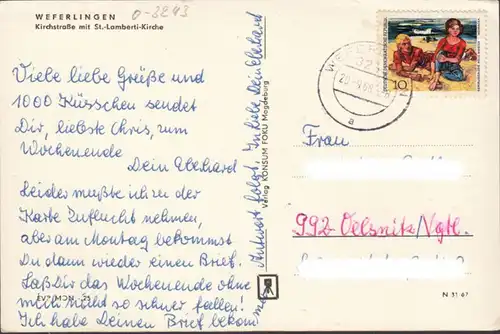 WEFERLINGEN
Kirchstraße mit St.-Lamberti-Kirche
0-3243
Viele liebe Grüße und
1000 Küsschen sendet
Dir, liebste Chris, zum
Wochenende
Dein Eberhard
Leider mußte ich zu der
Karte Zuflucht nehmen,
aber am Montag bekommst
Du dann wieder einen Brief.
Laß Dir das Wochenende ohne
mich nicht so schwer fallen!
Ich habe Deinen Brief bekom
men
Antwort folgt. In Liebe Dein Eberhard
Verlag KONSUM FOKU Magdeburg
DEUTSCHE DEMOKRATISCHE REPUBLIK
10
a
Frau
992 Oelsnitz/Vgtl.
N 31 67